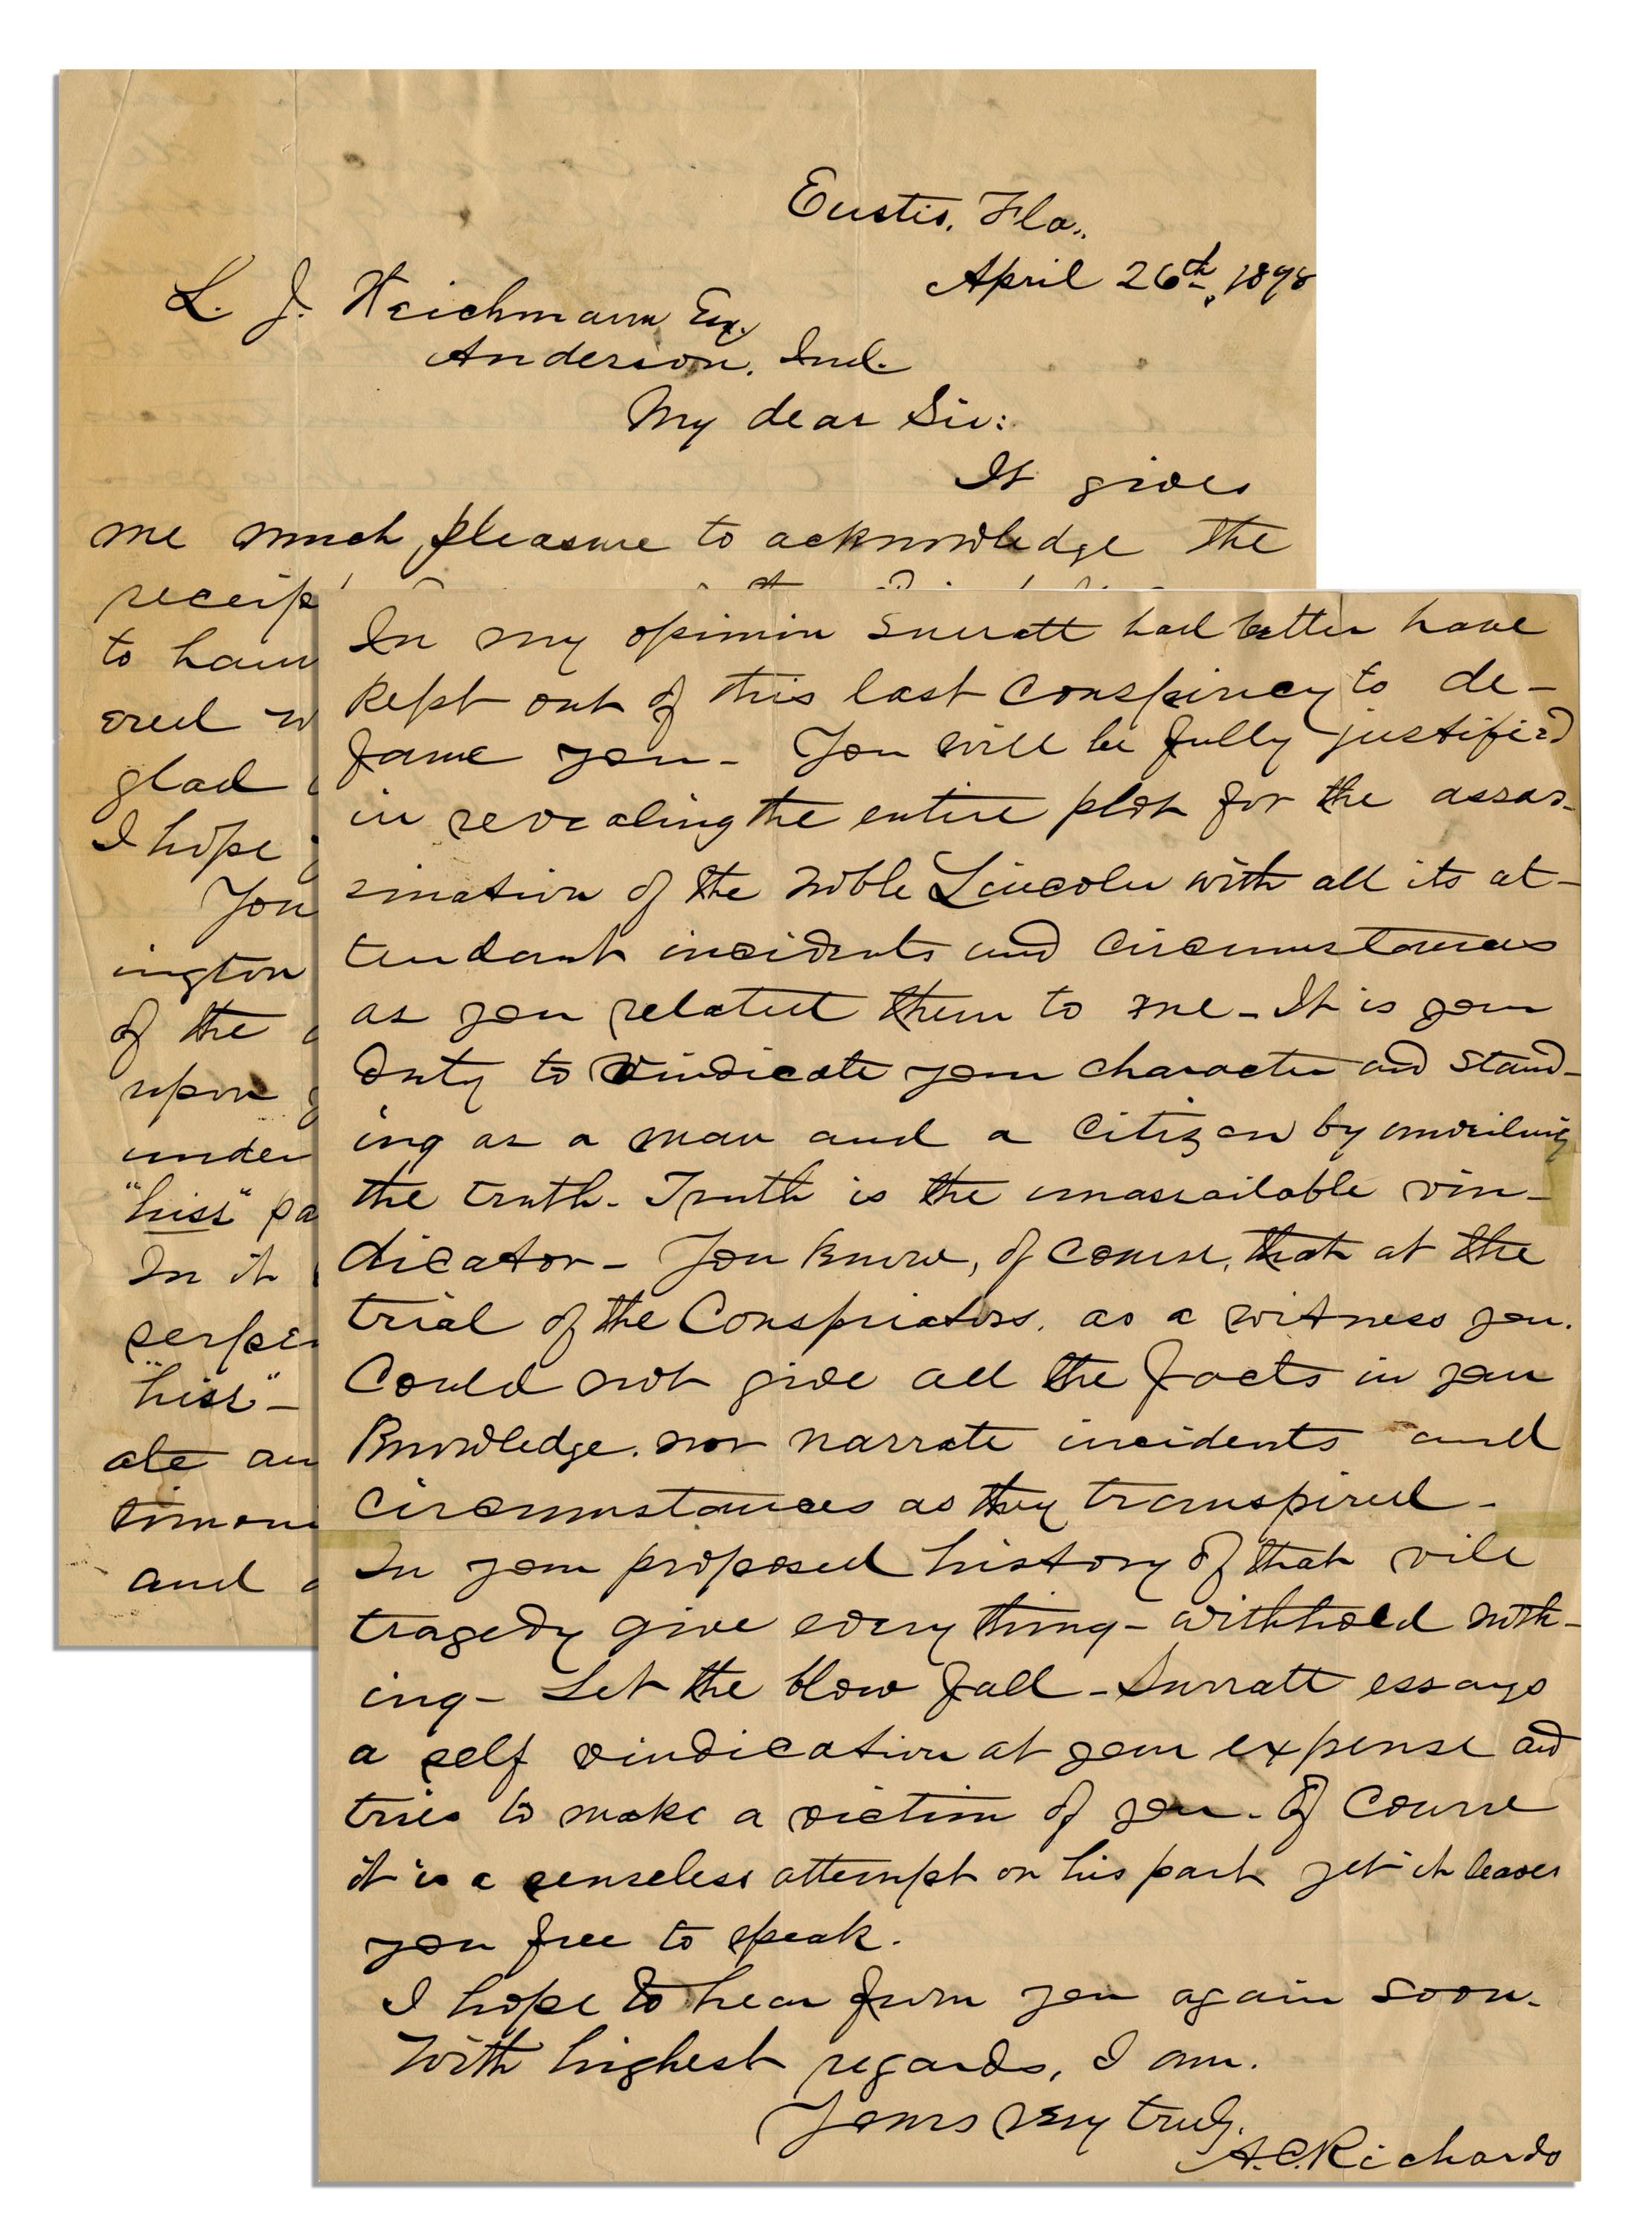 Eustis, Fla.,
April 26th, 1898
L. J. Weichmann Esq.
Anderson, Ind.
My dear Sir:
It gives
me much pleasure to acknowledge the
receip
to have
ered w
glad
I hope
You
ington
of the
upon
under
"hiss" pa
In it
perper
"hiss" -
ate an
timoni
and
In my opinion Surratt had better have
kept out of this last conspiracy to de-
fame you - You will be fully justified
in revealing the entire plot for the assas-
sination of the noble Lincoln with all its at-
tendant incidents and circumstances
as you related them to me - It is your
duty to vindicate your character and stand-
ing as a man and a citizen by unveiling
the truth - Truth is the unassailable vin-
dicator - You know, of course, that at the
trial of the Conspirators, as a witness you
could not give all the facts in your
knowledge, nor narrate incidents and
circumstances as they transpired -
In your proposed history of that vile
tragedy give every thing - withhold noth-
ing - Let the blow fall - Surratt essays
a self vindication at your expense and
tries to make a victim of you - Of course
it is a senseless attempt on his part yet it leaves
you free to speak.
I hope to hear from you again soon.
With highest regards, I am.
Yours very truly,
A.C. Richards